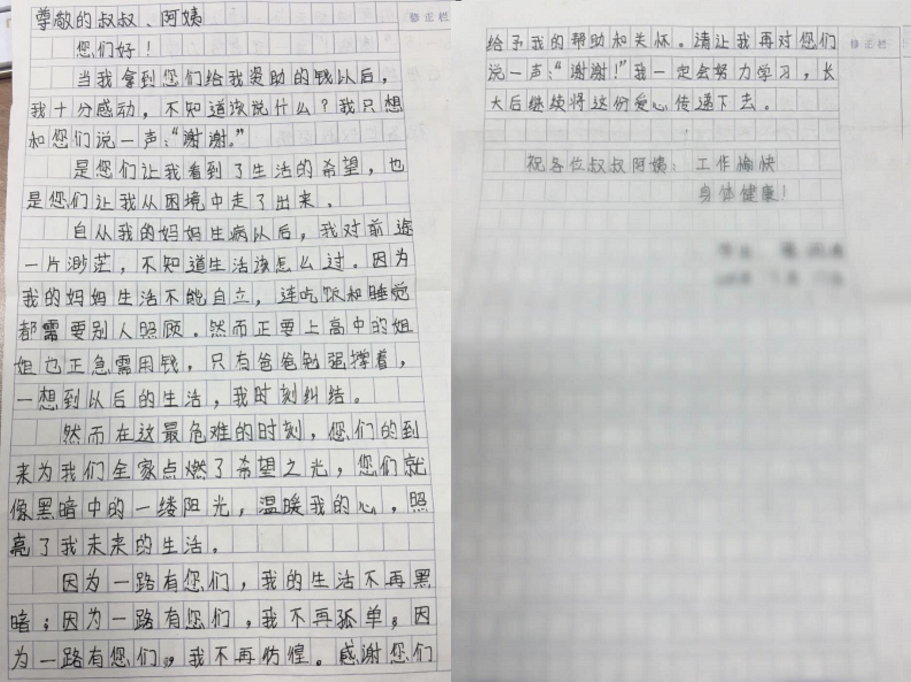 尊敬的叔叔、阿姨
修正栏
您们好！
当我拿到您们给我资助的钱以后，
我十分感动，不知道该说什么？我只想
和您们说一声：“谢谢。”
是您们让我看到了生活的希望，也
是您们让我从困境中走了出来．
自从我的妈妈生病以后，我对前途
一片渺茫，不知道生活该怎么过。因为
我的妈妈生活不能自立，连吃饭和睡觉
都需要别人照顾。然而正要上高中的姐
姐也正急需用钱，只有爸爸勉强撑着，
一想到以后的生活，我时刻纠结。
然而在这最危难的时刻，您们的到
来为我们全家点燃了希望之光，您们就
像黑暗中的一缕阳光，温暖我的心．照
亮了我未来的生活。
因为一路有您们，我的生活不再黑
暗；因为一路有您们，我不再孤单，因
为一路有您们，我不再彷徨。感谢您们
给予我的帮助和关怀。请让我再对您们
修正栏
说一声：“谢谢！”我一定会努力学习，长
大后继续将这份爱心传递下去。
祝各位叔叔阿姨：工作愉快
身体健康！